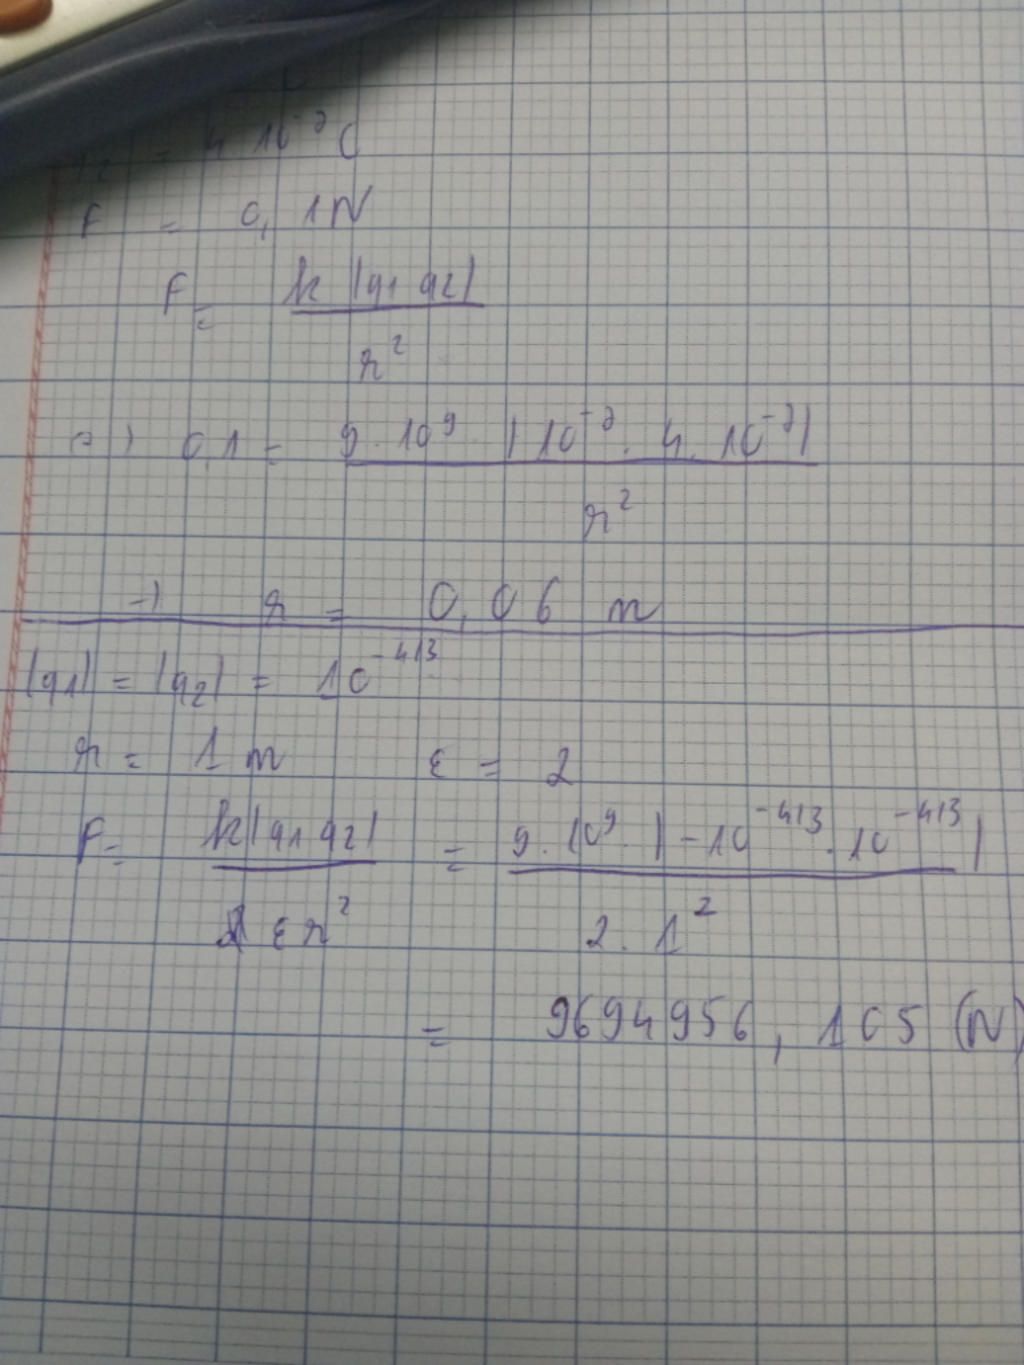 = 4 10⁻⁷ C
F = 0,1N
F = k |q1 q2| / r²
=> 0,1 = 9.10⁹ . |10⁻⁷ . 4.10⁻⁷| / r²
→ r = 0,06 m
|q1| = |q2| = 10⁻⁴/³
r = 1 m ε = 2
F = k|q1 q2| / ε r² = 9.10⁹ . |-10⁻⁴/³ . 10⁻⁴/³| / 2 . 1²
= 9694956,105 (N)